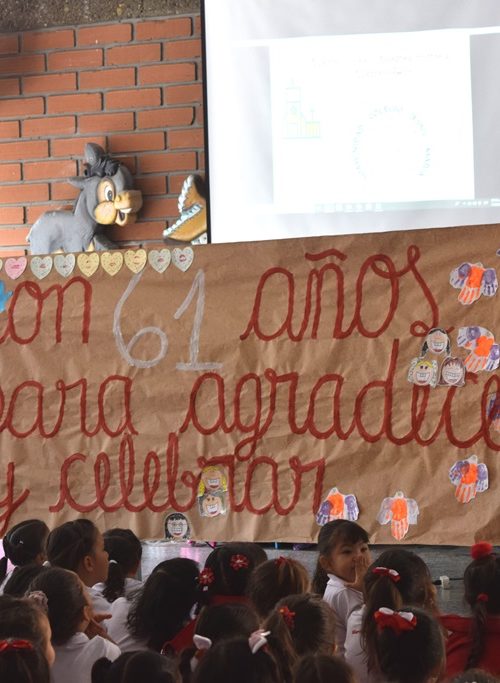 on 61 años
para agradece
y celebrar